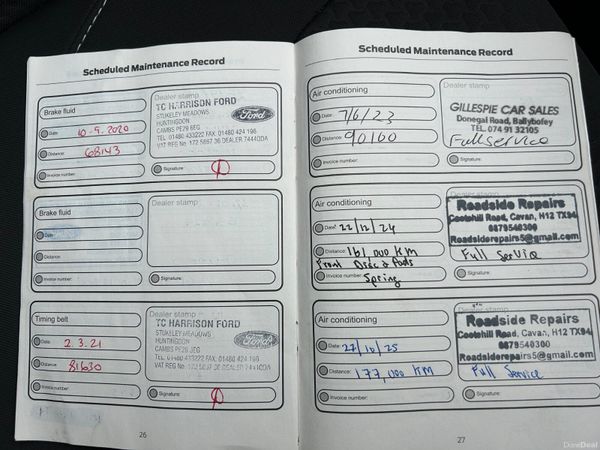 Scheduled Maintenance Record
Brake fluid
Date: 10.9.2020
Distance: 68143
Invoice number:
Dealer stamp
TC HARRISON FORD
STUKELEY MEADOWS
HUNTINGDON
CAMBS PE29 6EG
TEL. 01480 433222 FAX. 01480 424 196
VAT REG No 172 5697 36 DEALER 74440DA
Ford
Signature:
Brake fluid
Date:
Distance:
Invoice number:
Dealer stamp
Signature:
Timing belt
Date: 2.3.21
Distance: 81630
Invoice number:
Dealer stamp
TC HARRISON FORD
STUKELEY MEADOWS
HUNTINGDON
CAMBS PE29 6EG
TEL. 01480 433222 FAX. 01480 424 196
VAT REG No
Ford
Signature:
26
Scheduled Maintenance Record
Air conditioning
Date: 7/6/23
Distance: 90160
Invoice number:
Dealer stamp
GILLESPIE CAR SALES
Donegal Road, Ballybofey
TEL. 074 91 32105
Full Service
Signature:
Air conditioning
Date: 22/12/24
Distance: 161,000 KM
Front Discs & Pads
Invoice number: Spring
Dealer stamp
Roadside Repairs
Cootehill Road, Cavan, H12 TX94
0879540300
Roadsiderepairs5@gmail.com
Full Service
Signature:
Air conditioning
Date: 27/10/25
Distance: 177,000 KM
Invoice number:
Dealer stamp
Roadside Repairs
Cootehill Road, Cavan, H12 TX94
0879540300
Roadsiderepairs5@gmail.com
Full Service
Signature:
27
DoneDeal